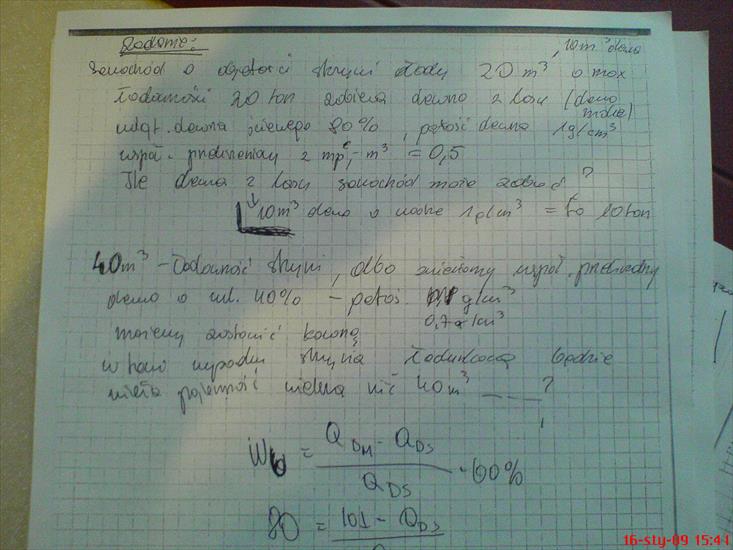 Zadanie: , 10m³ drewna
samochód o objętości skrzyni ładu 20 m³ o max
ładowności 20 ton zabiera drewno z lasu (drewno mokre)
wilgt. drewna 80%, gęstość drewna 1g/cm³
współ. przeliczeniowy z mp - m³ = 0,5
Ile drewna z lasu samochód może zabrać ?
↓ 10m³ drewna o 1g/cm³ = to 10 ton
40m³ - ładowność skrzyni, albo współ. przeliczeniowy
drewno o wil. 40% - gęstoś. g/cm³
0,7 g/cm³
możemy zostawić
w takim wypadku skrzynia ładunkowa będzie
miała pojemność większą niż 40m³ ___ ?
W = Q DM - Q DS / Q DS · 100%
80 = 101 - Q DS
16-sty-09 15:41